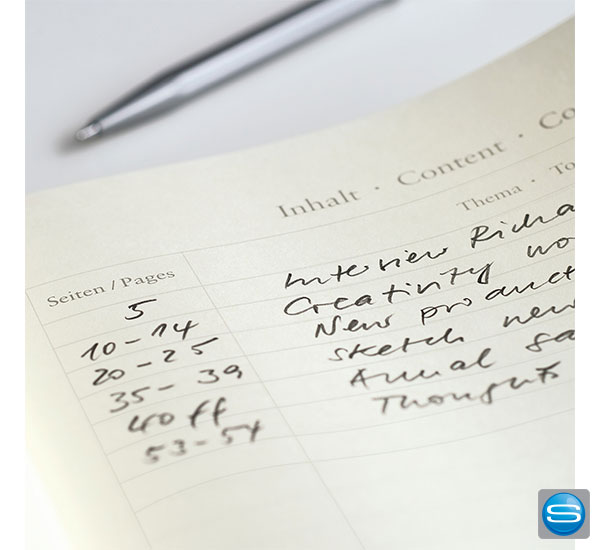 Inhalt · Content · Co
Seiten / Pages Thema · To
5 Interview Richa
10-14 Creativity wo
20-25 New product
35-39 sketch new
40 ff Annual sa
53-54 Thoughts
S